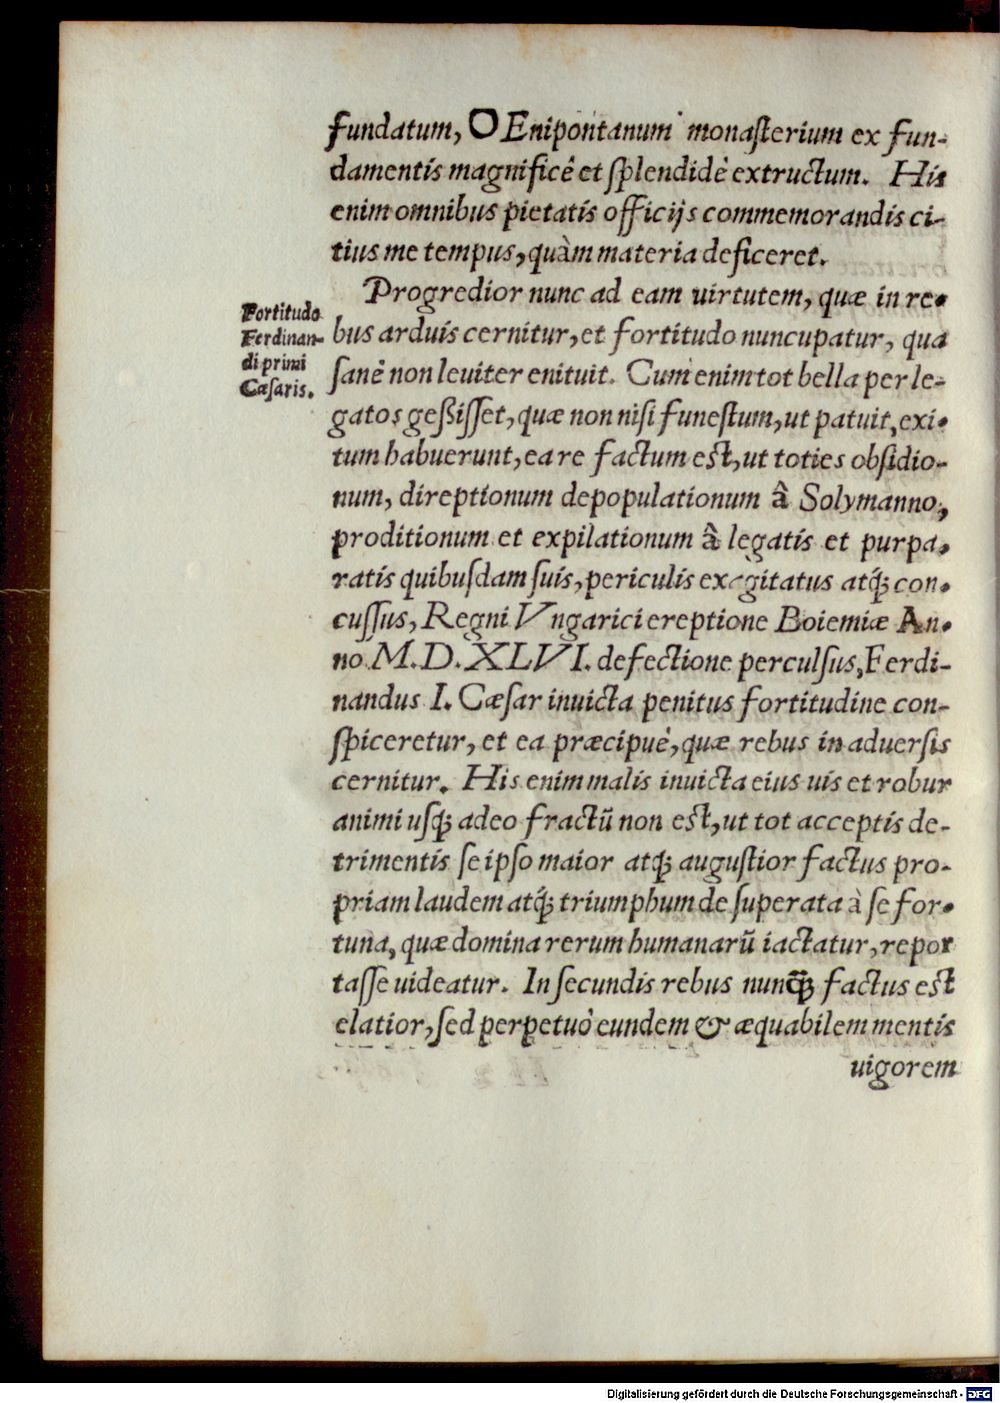 fundatum, O Enipontanum monasterium ex fun-
damentis magnificê et splendidè extructum. His
enim omnibus pietatis officijs commemorandis ci-
tius me tempus, quàm materia deficeret.
Progredior nunc ad eam uirtutem, quæ in re-
Fortitudo
Ferdinan-
di primi
Cæsaris.
bus arduis cernitur, et fortitudo nuncupatur, qua
sanè non leuiter enituit. Cum enim tot bella per le-
gatos geßisset, quæ non nisi funestum, ut patuit, exi-
tum habuerunt, ea re factum est, ut toties obsidio-
num, direptionum depopulationum â Solymanno,
proditionum et expilationum â legatis et purpa-
ratis quibusdam suis, periculis exagitatus atq́; con-
cussus, Regni Vngarici ereptione Boiemiæ An-
no M.D.XLVI. defectione perculsus, Ferdi-
nandus I. Cæsar inuicta penitus fortitudine con-
spiceretur, et ea præcipuè, quæ rebus in aduersis
cernitur. His enim malis inuicta eius uis et robur
animi usq́; adeo fractũ non est, ut tot acceptis de-
trimentis se ipso maior atq́; augustior factus pro-
priam laudem atq́; triumphum de superata à se for-
tuna, quæ domina rerum humanarũ iactatur, repor
tasse uideatur. In secundis rebus nunq̃; factus est
elatior, sed perpetuò eundem & æquabilem mentis
uigorem
Digitalisierung gefördert durch die Deutsche Forschungsgemeinschaft - DFG